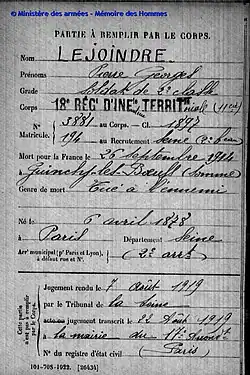 © Ministère des armées - Mémoire des Hommes
PARTIE À REMPLIR PAR LE CORPS.
Nom LEJOINDRE
Prénoms Pierre Georges
Grade Soldat de 2e classe
Corps 18e RÉGt D'INFie TERRITle (11e Cie)
N° 3381 au Corps. — Cl. 1897
Matricule. 194 au Recrutement Seine (2e bau)
Mort pour la France le 26 Septembre 1914
à Guinchy-les-Bœufs (Somme)
Genre de mort Tué à l'ennemi
Né le 6 avril 1873
à Paris Département Seine
Arrt municipal (pr Paris et Lyon), à défaut rue et N°. (2e arrt)
Cette partie n'est pas à remplir par le Corps.
Jugement rendu le 7 août 1919
par le Tribunal de la Seine
acte ou jugement transcrit le 22 Août 1919
à la mairie du 17e arrondt
(Paris)
N° du registre d'état civil
101-708-1922. [26434]